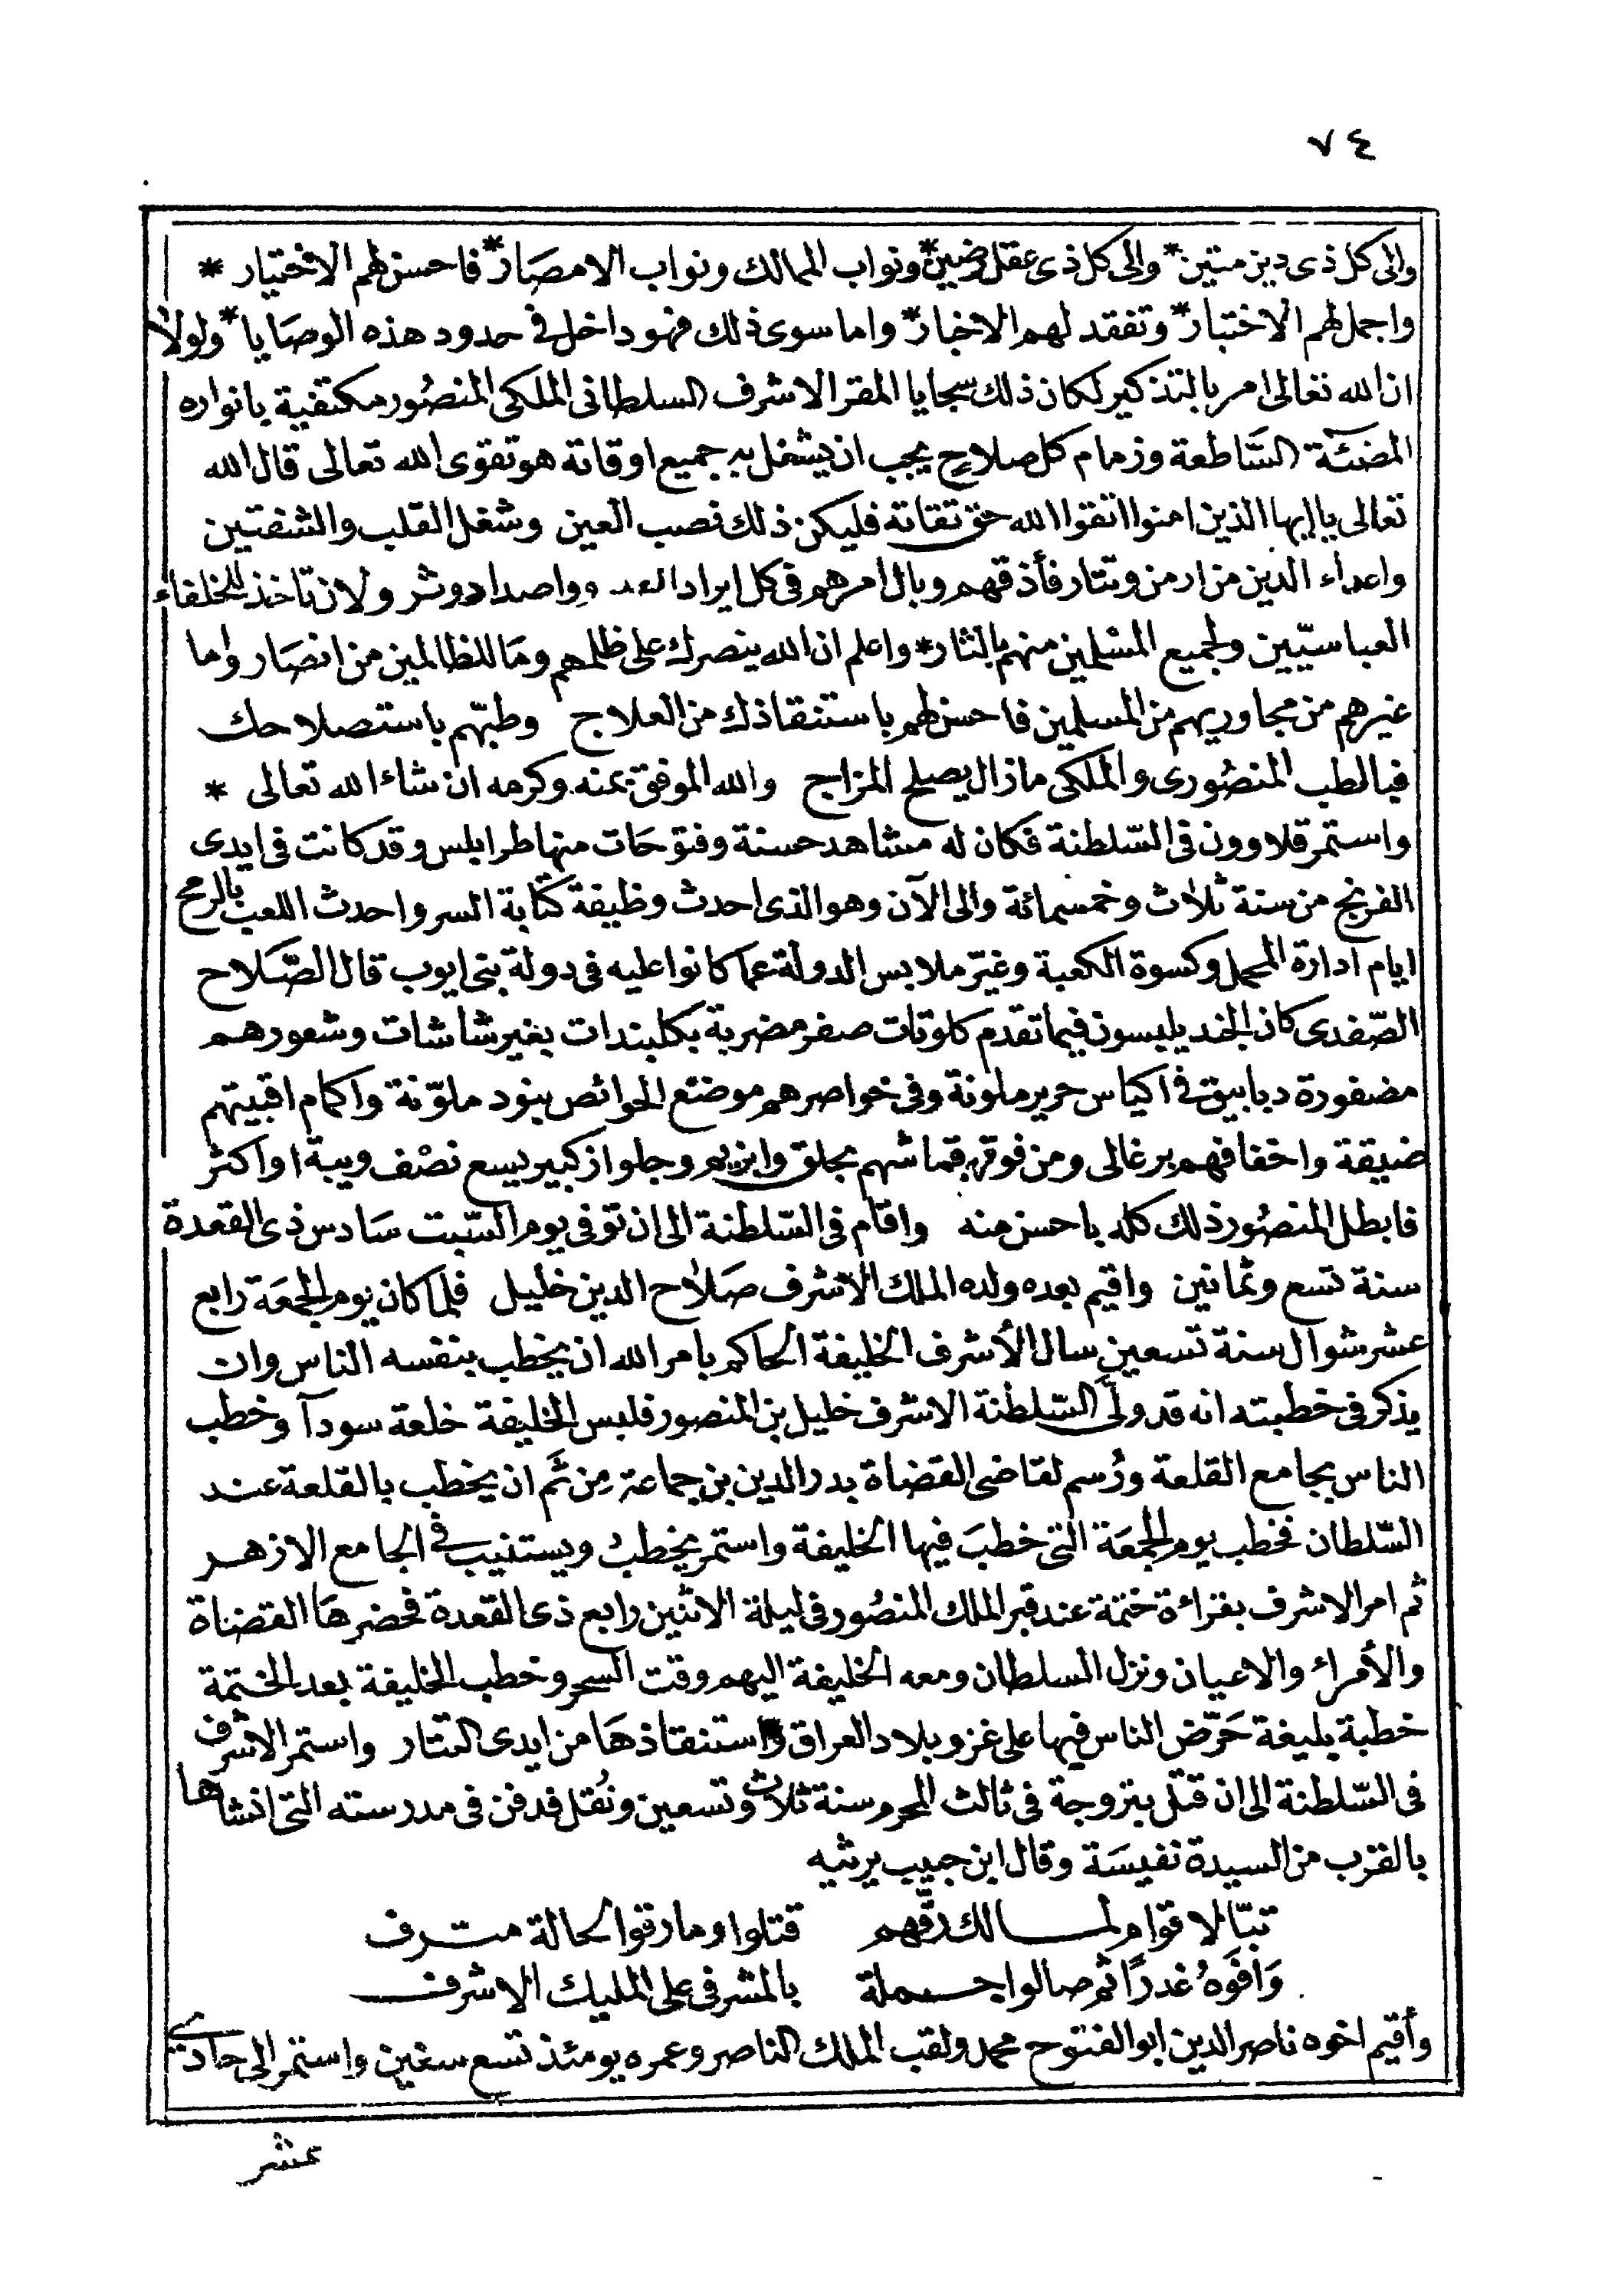 ٧٤
والى كل ذى دين متين * والى كل ذى عقل رضين * ونواب الممالك ونواب الامصار * فاحسن لهم الاختيار *
واجمل لهم الاختبار * وتفقد لهم الاخبار * واما سوى ذلك فهو داخل فى حدود هذه الوصايا * ولولا
ان الله تعالى امر بالتذكير لكان ذلك سجايا المقر الاشرف السلطانى الملكى المنصور مكتفية بانواره
المضيئة السّاطعة وزمام كل صلاح يجب ان يشغل به جميع اوقاته هو تقوى الله تعالى قال الله
تعالى ياايها الذين امنوا اتقوا الله حق تقاته فليكن ذلك نصب العين وشغل القلب والشفتين
واعداء الدين من ارمن وتتار فأذقهم وبال امرهم فى كل ايراد واصدار وثر ولان تاخذ للخلفاء
العباسيّين ولجميع المسلمين منهم بالثار * واعلم ان الله ينصرك على ظلمهم وما للظالمين من انصار واما
غيرهم من مجاوريهم من المسلمين فاحسن لهم باستنقاذك من العلاج وطبّهم باستصلاحك
فبالطب المنصورى والملكى مازال يصلح المزاج والله الموفق بمنه وكرمه ان شاء الله تعالى *
واستمر قلاوون فى السّلطنة فكان له مشاهد حسنة وفتوحات منها طرابلس وقد كانت فى ايدى
الفرنج من سنة ثلاث وخمسمائة والى الآن وهو الذى احدث وظيفة كتابة السر واحدث اللعب بالرمح
ايام ادارة المحمل وكسوة الكعبة وغيّر ملابس الدولة عما كانوا عليه فى دولة بنى ايوب قال الصّلاح
الصّفدى كان الجند يلبسون فيما تقدم كلوتات صفر مضربة بكلبندات بغير شاشات وشعورهم
مضفورة دبابيق فى اكياس حرير ملونة وفى خواصرهم موضع الحوائص بنود ملوّنة واكمام اقبيتهم
ضيقة واخفافهم برغالى ومن فوق قماشهم بحلق وابزيم وجلواز كبير يسع نصْف ويبة او اكثر
فابطل المنصور ذلك كله باحسن منه واقام فى السّلطنة الى ان توفى يوم السّبت سادس ذى القعدة
سنة تسع وثمانين واقيم بعده ولده الملك الاشرف صلاح الدين خليل فلما كان يوم الجمعة رابع
عشر شوال سنة تسعين سال الأشرف الخليفة الحاكم بامر الله ان يخطب بنفسه الناس وان
يذكر فى خطبته انه قد ولّى السّلطنة الاشرف خليل بن المنصور فلبس الخليفة خلعة سودآ وخطب
الناس بجامع القلعة ورُسم لقاضى القضاة بدر الدين بن جماعة مِن ثَم ان يخطب بالقلعة عند
السّلطان فخطب يوم الجمعة التى خطبَ فيها الخليفة واستمر يخطبُ ويستنيب فى الجامع الازهر
ثم امر الاشرف بقراءة ختمة عند قبر الملك المنصور فى ليلة الاثنين رابع ذى القعدة فحضرها القضاة
والأمراء والاعيان ونزل السلطان ومعه الخليفة اليهم وقت السحر وخطب الخليفة بعد الختمة
خطبة بليغة حَرّض الناس فيها على غزو بلاد العراق واستنقاذها من ايدى التتار واستمر الاشرف
فى السّلطنة الى ان قتل بتروجة فى ثالث المحرم سنة ثلاث وتسعين ونُقل فدفن فى مدرسته التى انشاها
بالقرب من السيدة نفيسَة وقال ابن حبيب يرثيه
تبّا لاقوام لمالك رقّهم قتلوا وما رقوا لحالة مترف
وَافَوهُ غدرًا ثم صالوا جملة بالمشرفى على المليك الاشرف
وأقيم اخوه ناصر الدين ابو الفتوح محمد ولقب الملك الناصر وعمره يومئذ تسع سنين واستمر الى حادى
عشر